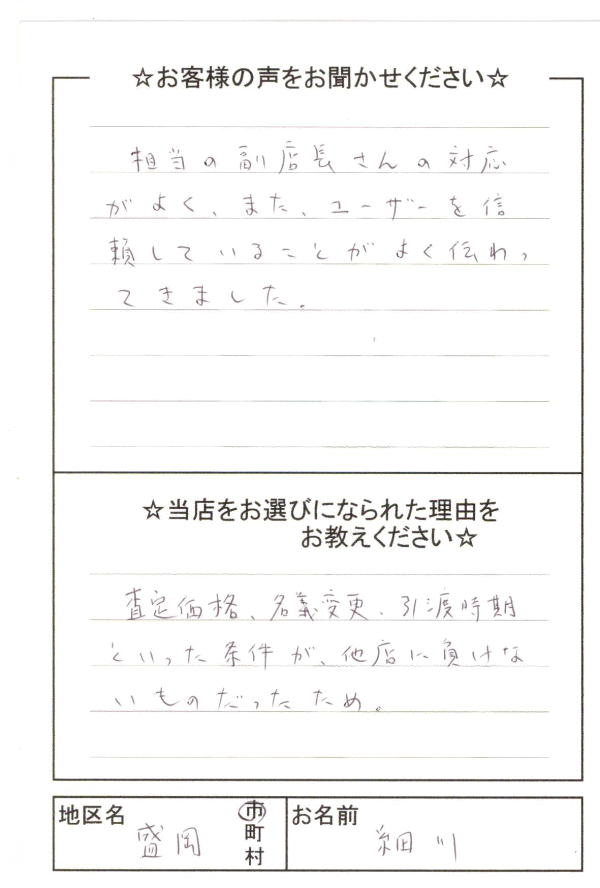 ☆お客様の声をお聞かせください☆
担当の副店長さんの対応
がよく、また、ユーザーを信
頼していることがよく伝わっ
てきました。
☆当店をお選びになられた理由を
お教えください☆
査定価格、名義変更、引渡時期
といった条件が、他店に負けな
いものだったため。
地区名
盛岡
市
町
村
お名前
細川